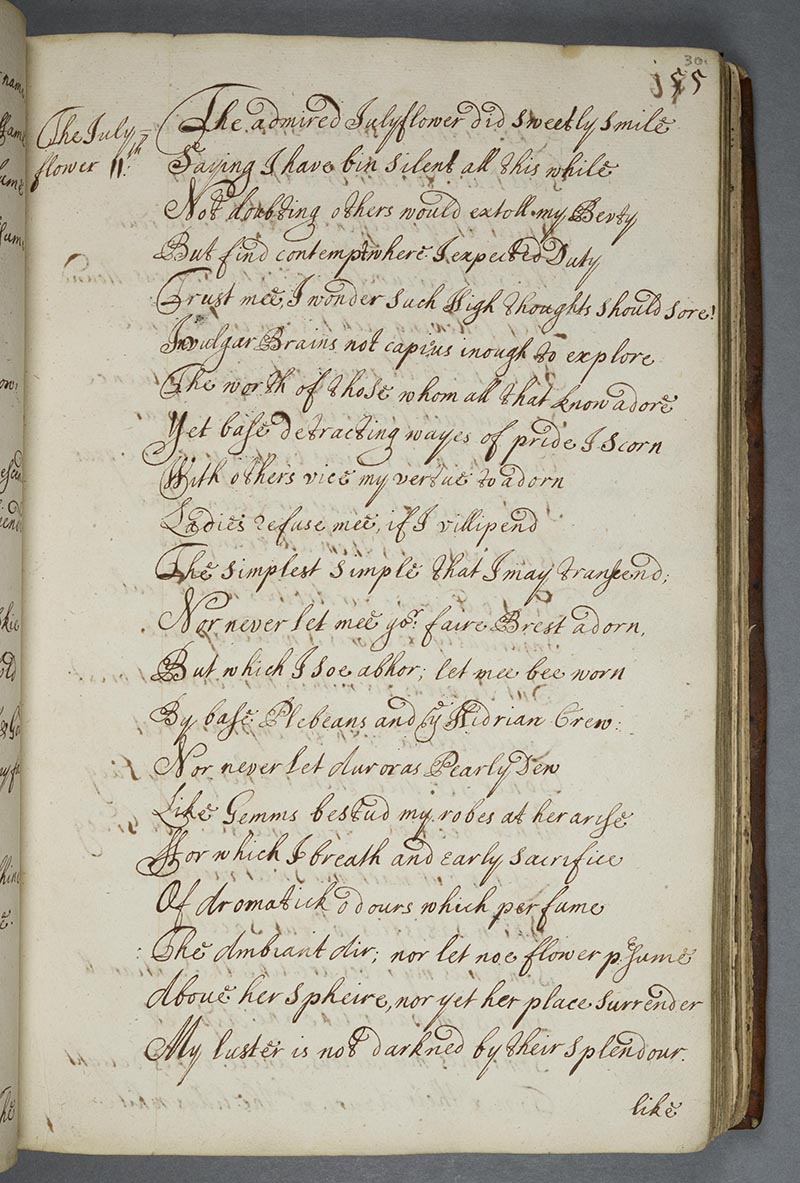 30
155
The July=
flower 11th:
The admired Julyflower did sweetly smile
Saying I have bin silent all this while
Not doubting others would extoll my Bevty
But find contempt where I expected Duty
Trust mee, I wonder such High thoughts should sore!
In vulgar Brains not capi'us inough to explore
The worth of those whom all that know adore
Yet base detracting wayes of pride I scorn
With others vice my vertue to adorn
Ladies refuse mee, if I villipend
The simplest simple that I may transcend;
Nor never let mee yor: faire Brest adorn,
But which I soe abhor; let mee bee worn
By base Plebeans and ye Hidrian Crew:
Nor never let Auroras Pearly Dew
Like Gemms bestud my robes at her arise
For which I breath and early sacrifice
Of Aromatick odours which perfume
The Ambiant Air; nor let noe flower p:sume
Above her Spheire, nor yet her place surrender
My luster is not darkned by their splendour.
like